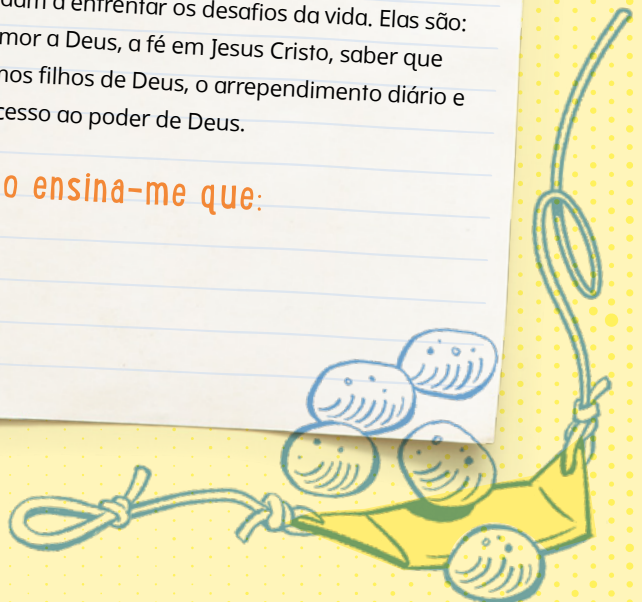 a enfrentar os desafios da vida. Elas são:
mor a Deus, a fé em Jesus Cristo, saber que
mos filhos de Deus, o arrependimento diário e
cesso ao poder de Deus.
o ensina-me que: